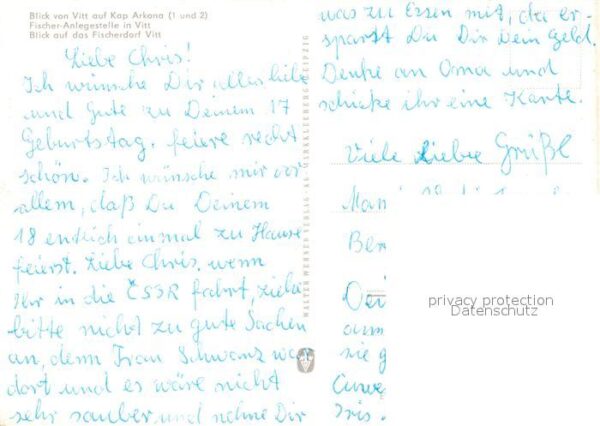 Blick von Vitt auf Kap Arkona (1 und 2)
Fischer-Anlegestelle in Vitt
Blick auf das Fischerdorf Vitt
Liebe Chris!
Ich wünsche Dir alles liebe
und Gute zu Deinem 17
Geburtstag. feiere recht
schön. Ich wünsche mir vor
allem, daß Du Deinem
18 entlich einmal zu Hause
feierst. Liebe Chris, wenn
Ihr in die ČSSR fahrt, ziehe
bitte nicht zu gute Sachen
an, denn Frau Schwanz wa
dort und es wäre nicht
sehr sauber, und nehme Dir
WALTER WERNER VERLAG KG MARKKLEEBERG LEIPZIG
was zu Essen mit, da er-
sparst Du Dir Dein Geld.
Denke an Oma und
schicke ihr eine Karte.
Viele Liebe Grüße
privacy protection
Datenschutz
sie g
Iris.